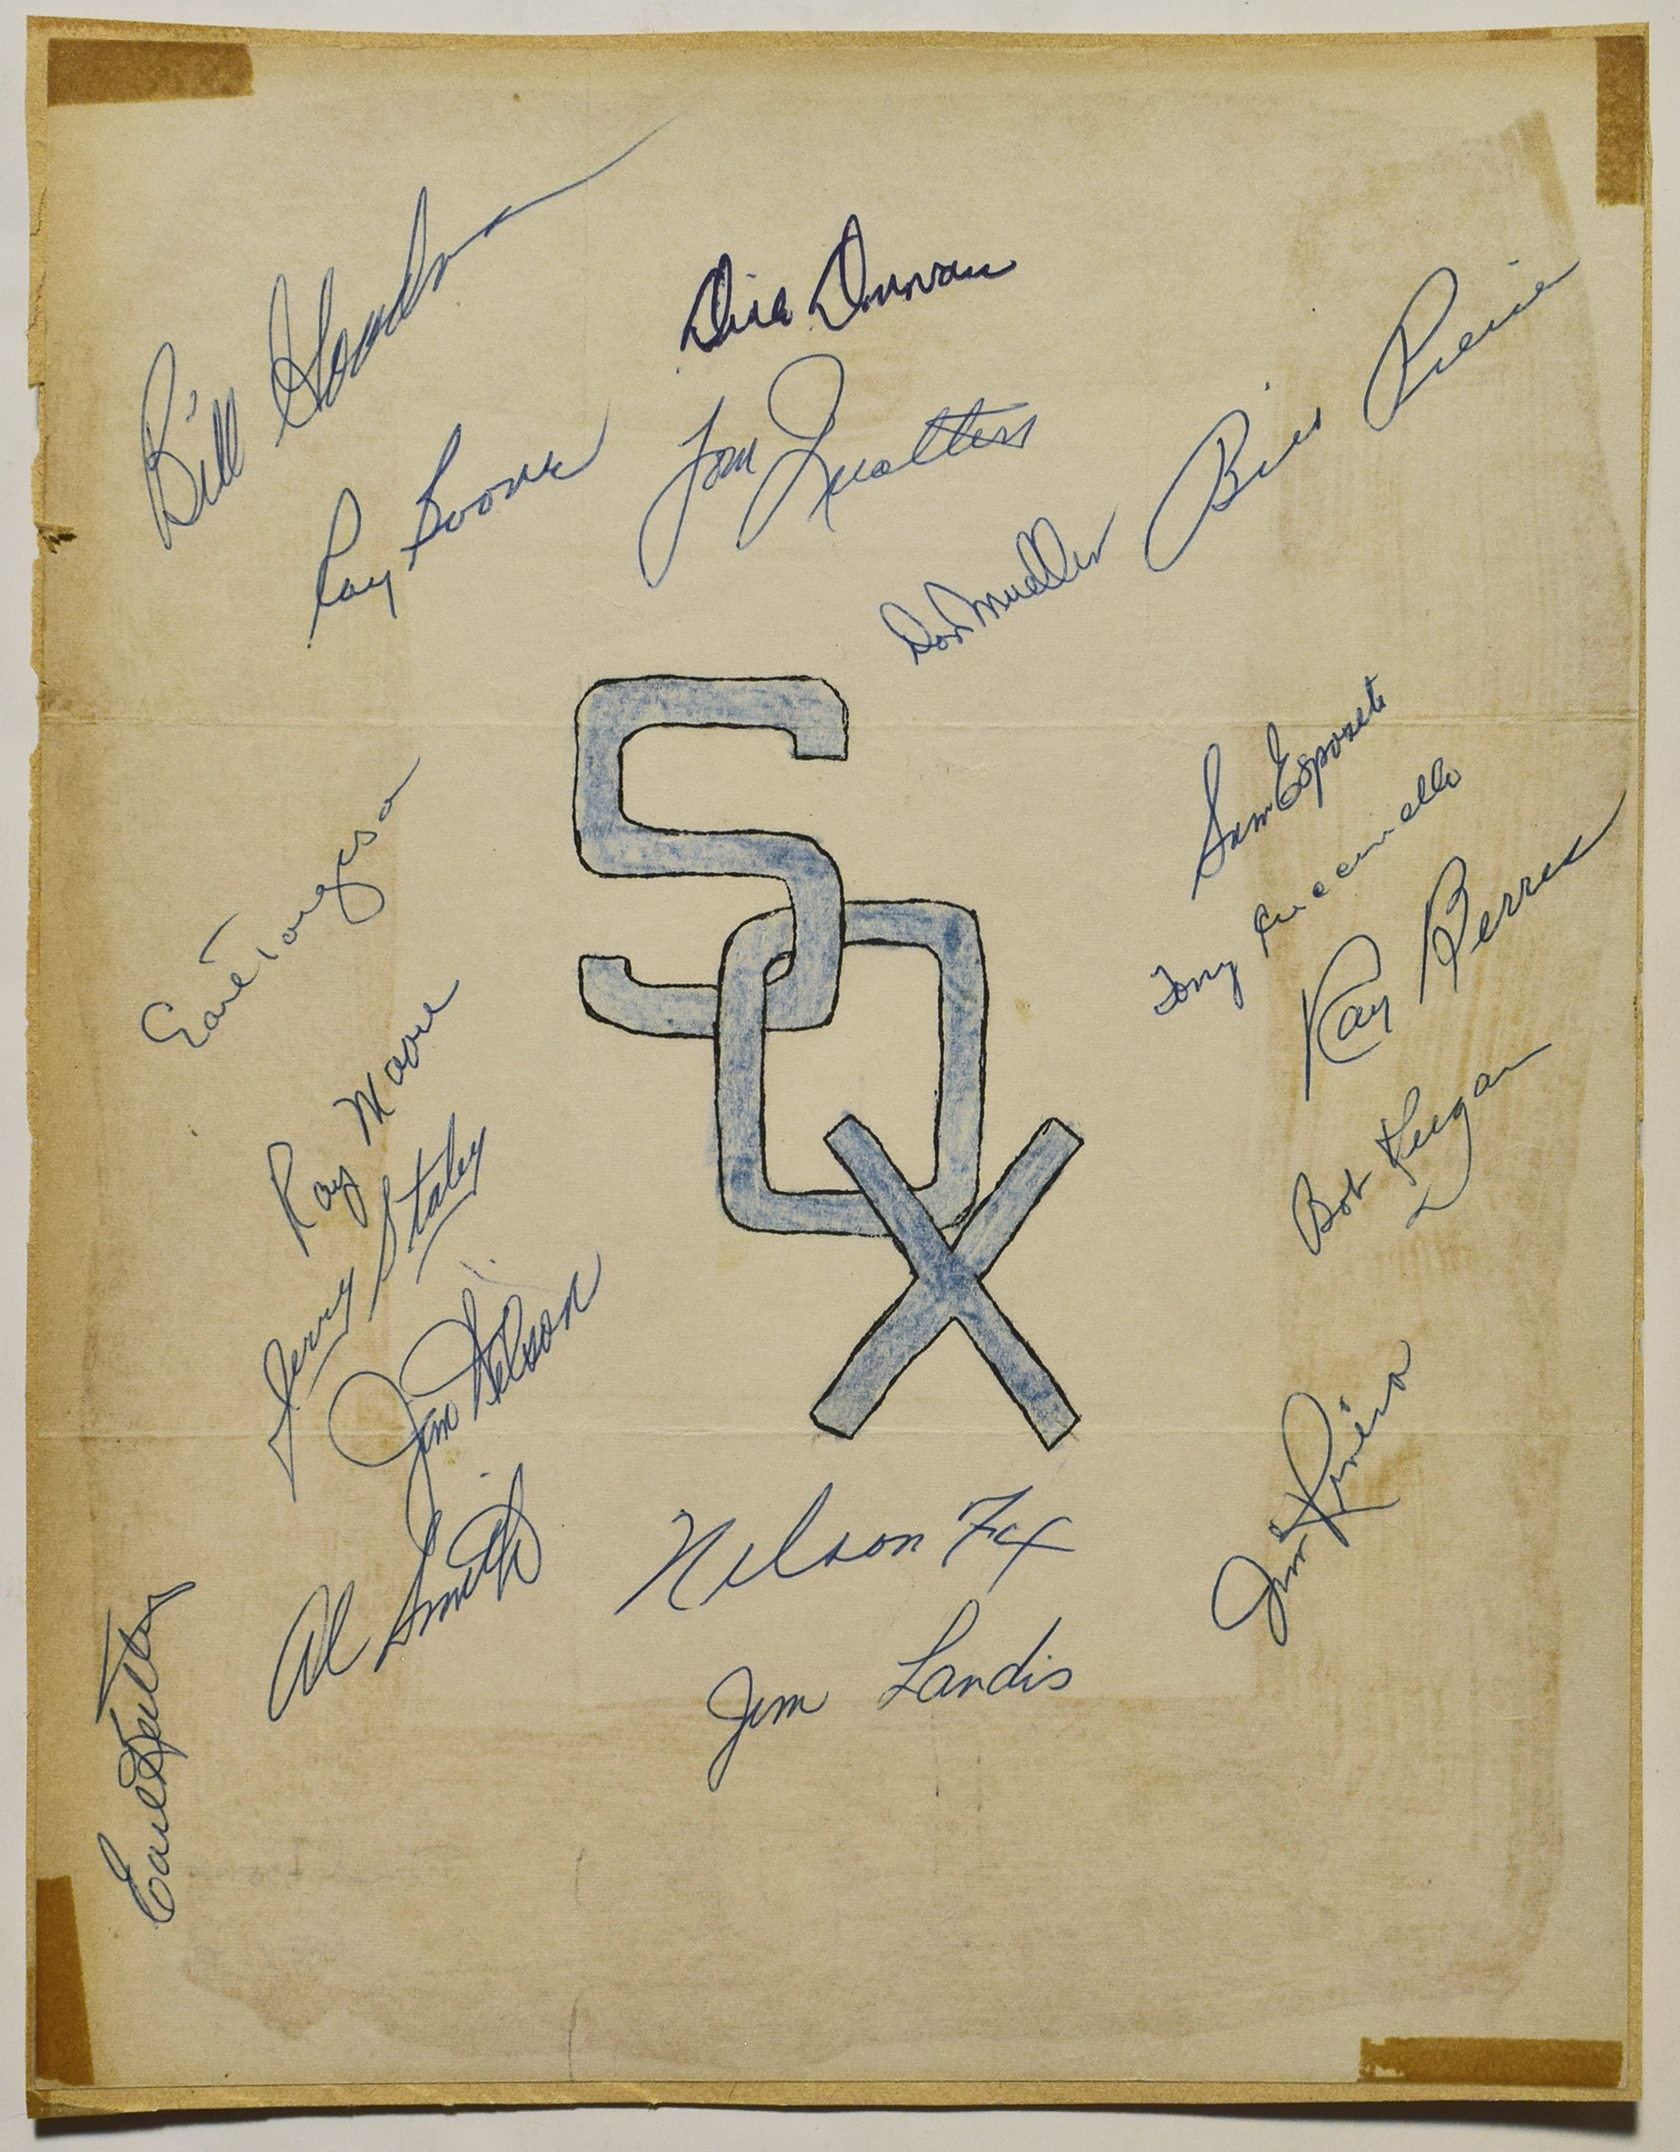 Bill Goodman
Dick Donovan
Ray Boone
Tom Qualters
Billy Pierce
Don Mueller
SOX
Sam Esposito
Tony Cuccinello
Ray Berres
Bob Keegan
Earl Torgeson
Ray Moore
Jerry Staley
Jim Wilson
Al Smith
Earl Battey
Nelson Fox
Jim Landis
Jim Rivera